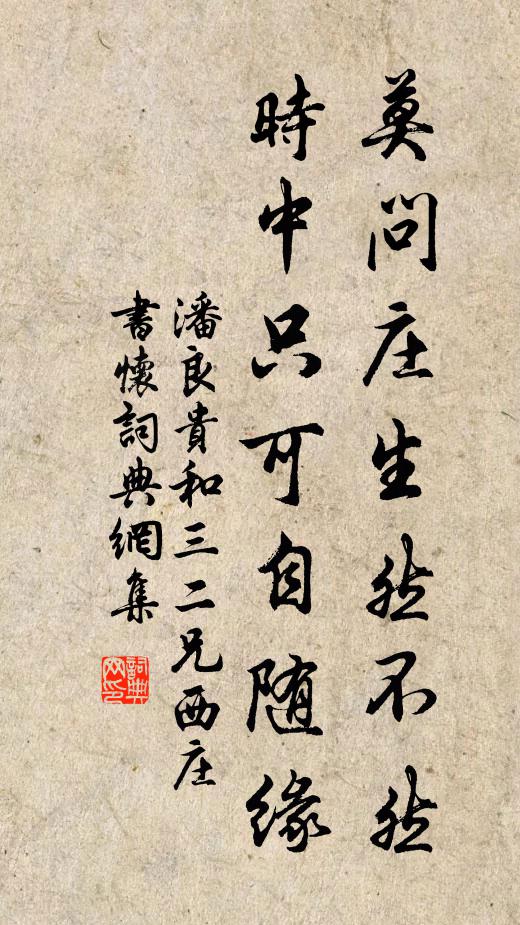 莫問庄生然不然
時中只可自随緣
潘良貴和三二兄西庄
書懷詞典網集
詞典网印